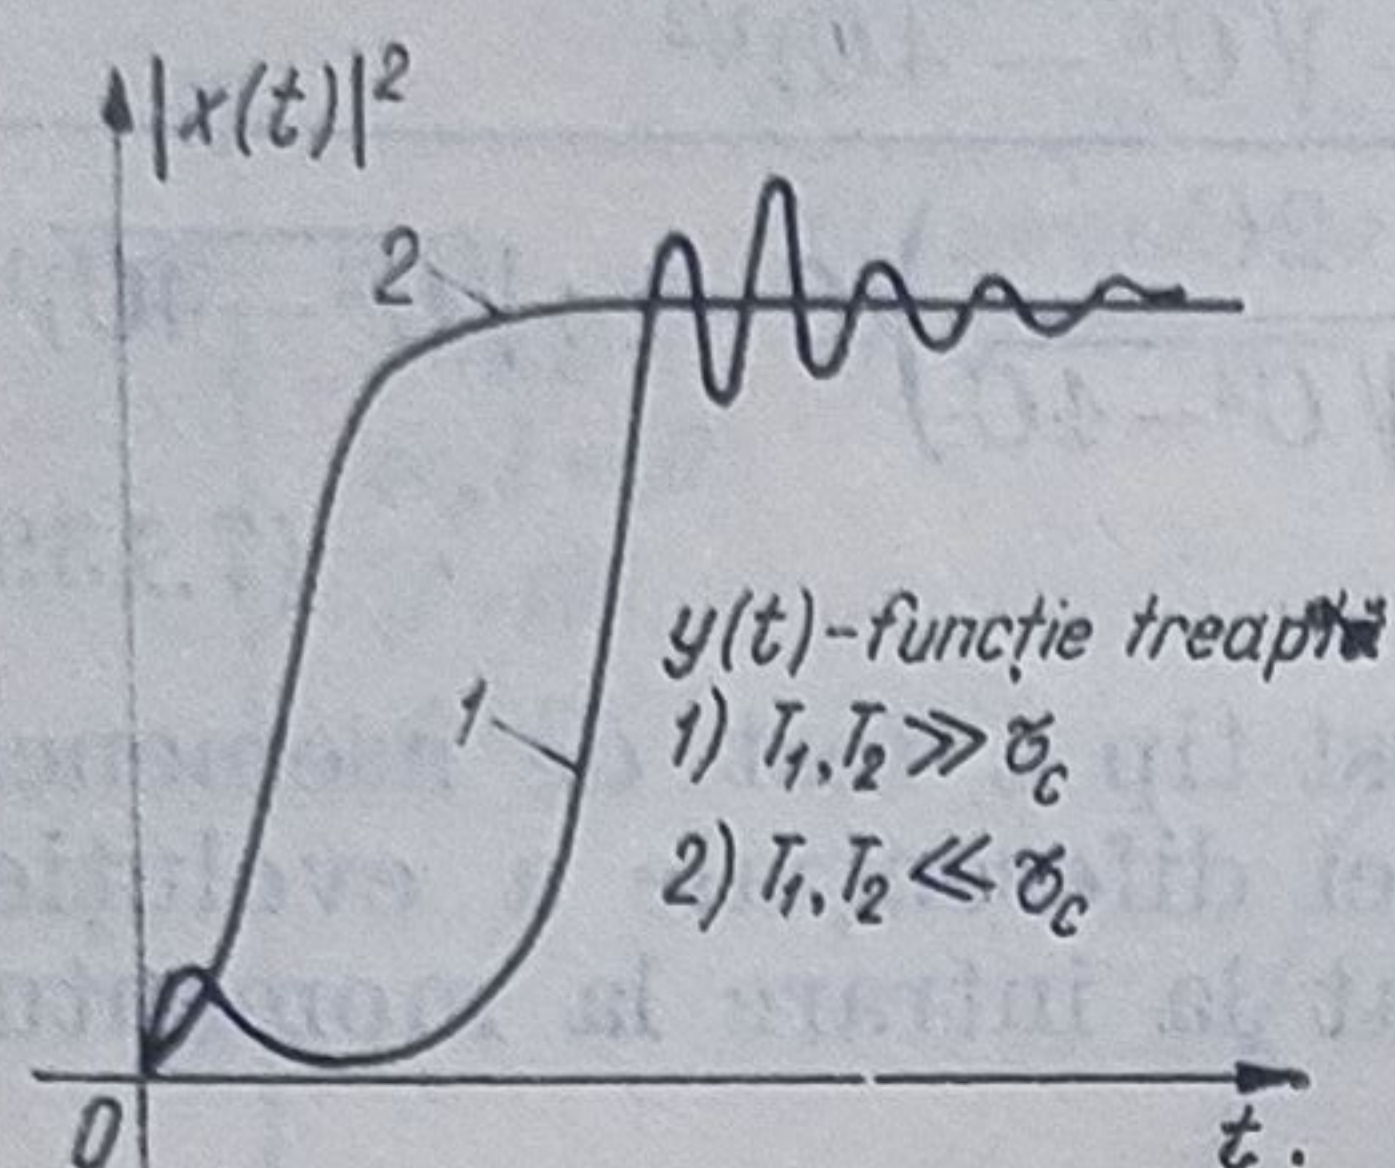 |x(t)|²
2
y(t)-funcție treaptă
1
1) T₁, T₂ >> ꞇc
2) T₁, T₂ << ꞇc
0
t.